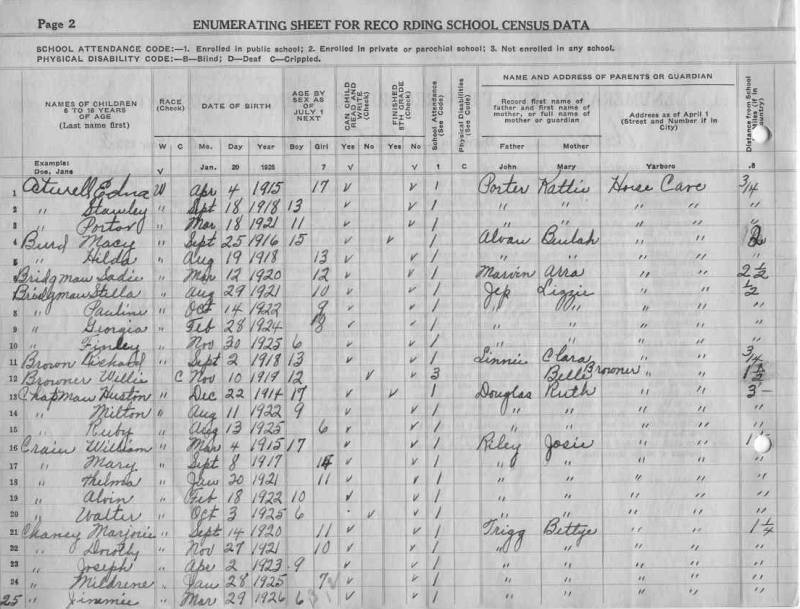 Page 2 ENUMERATING SHEET FOR RECO RDING SCHOOL CENSUS DATA
SCHOOL ATTENDANCE CODE:—1. Enrolled in public school; 2. Enrolled in private or parochial school; 3. Not enrolled in any school.
PHYSICAL DISABILITY CODE:—B—Blind; D—Deaf C—Crippled.
NAMES OF CHILDREN 6 TO 18 YEARS OF AGE (Last name first) RACE (Check) DATE OF BIRTH AGE BY SEX AS OF JULY 1 NEXT CAN CHILD READ AND WRITE (Check) FINISHED 8TH GRADE (Check) School Attendance (See Code) Physical Disabilities (See Code) NAME AND ADDRESS OF PARENTS OR GUARDIAN Distance from school
Record first name of father and first name of mother, or full name of mother or guardian Address as of April 1 (Street and Number if in City)
W C Mo. Day Year Boy Girl Yes No Yes No Father Mother
Example: Doe, Jane V Jan. 20 1925 7 V V 1 C John Mary Yarboro .8
1 Edna W Apr 4 1915 17 v v 1 Porter Kattie Horse Cave 3/4
2 " Stanley " Sept 18 1918 13 v v 1 " " " " "
3 " Porter " Mar 18 1921 11 v v 1 " " " " "
4 Burd Macy " Sept 25 1916 15 v v 1 Alvan Beulah " "
5 " Hilda " Aug 19 1918 13 v v 1 " " " " "
Bridgman Sadie " Mar 12 1920 12 v v 1 Marvin Arra " " 2 1/2
Bridgman Stella " Aug 29 1921 10 v v 1 Jep Lizzie " " 1/2
8 " Pauline " Oct 14 1922 9 v v 1 " " " " "
9 " Georgia " Feb 28 1924 8 v v 1 " " " " "
10 " Finley " Nov 30 1925 6 v v 1 " " " " "
11 Brown Richard " Sept 2 1918 13 v v 1 Linnie Clara " " 3/4
12 Browner Willie C Nov 10 1919 12 v v 3 Belle Browner " " 1 1/2
13 Chapman Huston " Dec 22 1914 17 v v 1 Douglas Ruth " " 3 -
14 " Milton " Aug 11 1922 9 v v 1 " " " " "
15 " Ruby " Aug 13 1925 6 v v 1 " " " " "
16 Crain William " Mar 4 1915 17 v v 1 Riley Josie " "
17 " Mary " Sept 8 1917 14 v v 1 " " " " "
18 " Thelma " Jan 20 1921 11 v v 1 " " " " "
19 " Alvin " Feb 18 1922 10 v v 1 " " " " "
20 " Walter " Oct 3 1925 6 v v 1 " " " " "
21 Chaney Marjorie " Sept 14 1920 11 v v 1 Trigg Bettye " " 1 1/4
22 " Dorothy " Nov 27 1921 10 v v 1 " " " " "
23 " Joseph " Apr 2 1923 9 v v 1 " " " " "
24 " Mildrene " Jan 28 1925 7 v v 1 " " " " "
25 " Jimmie " Mar 29 1926 6 v v 1 " " " " "